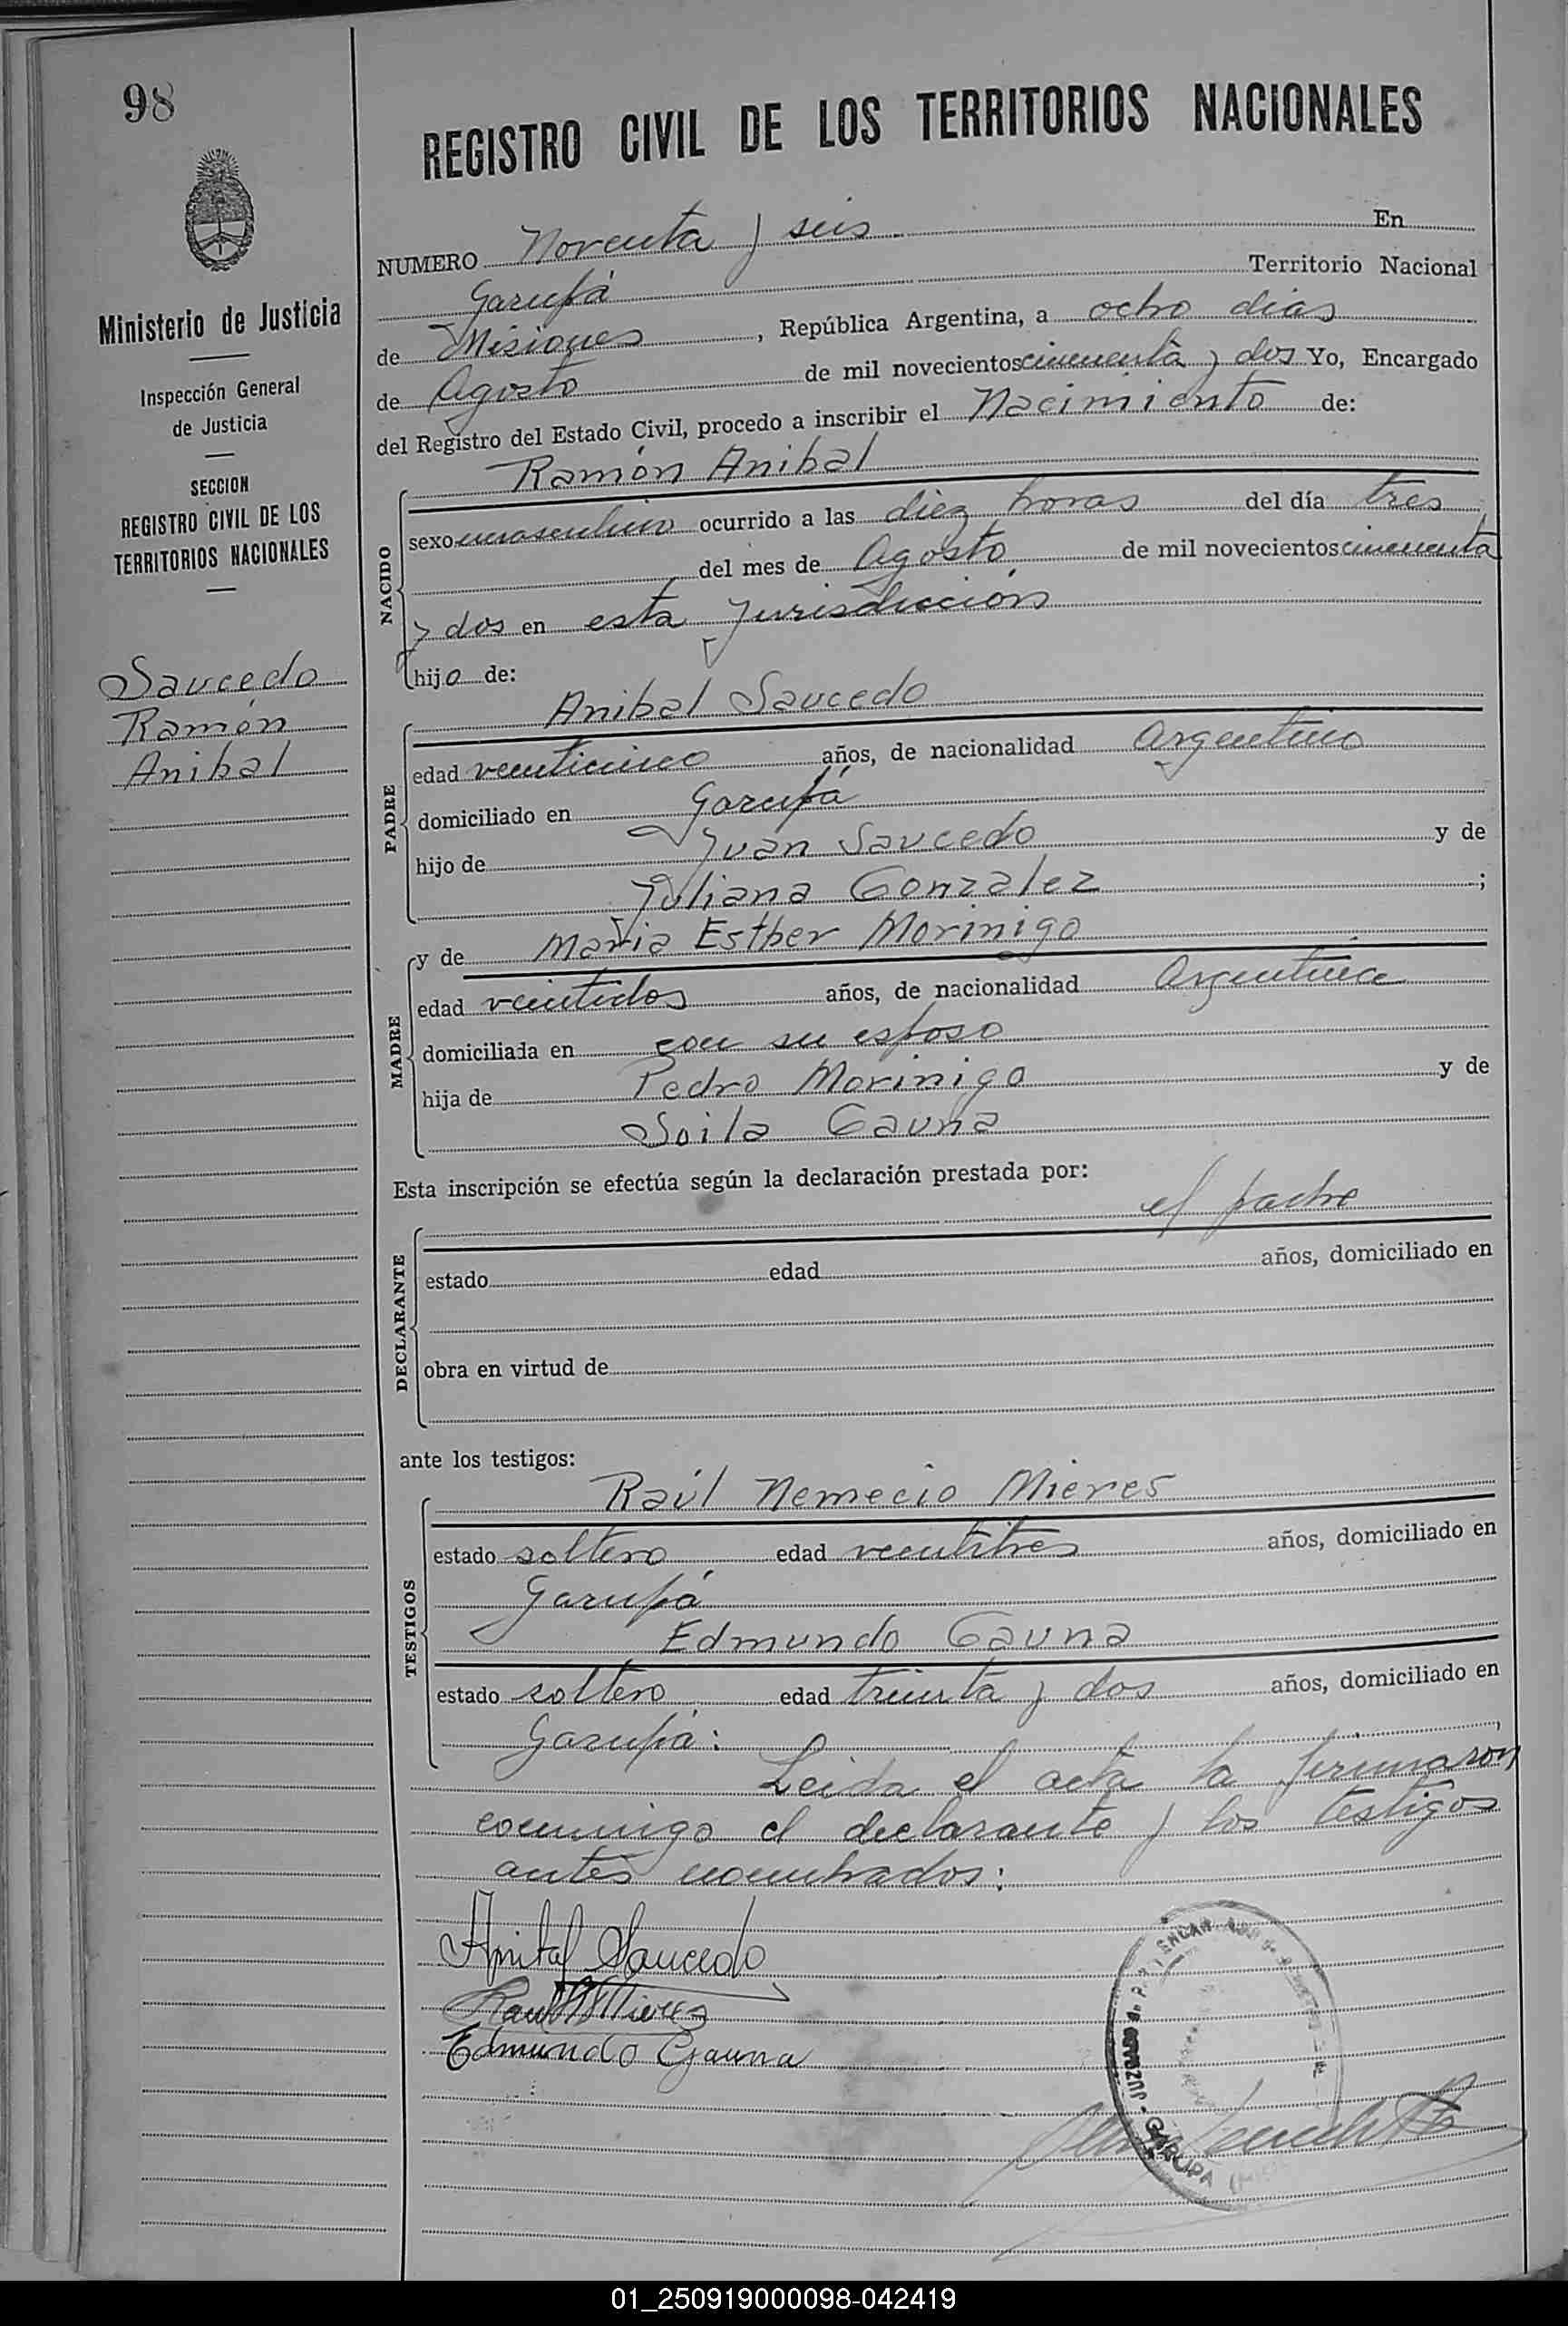 98
REGISTRO CIVIL DE LOS TERRITORIOS NACIONALES
Ministerio de Justicia
Inspección General
de Justicia
SECCION
REGISTRO CIVIL DE LOS
TERRITORIOS NACIONALES
Saucedo
Ramón
Anibal
NUMERO Noventa y seis. En
Garupá Territorio Nacional
de Misiones, República Argentina, a ocho dias
de Agosto de mil novecientos cincuenta y dos Yo, Encargado
del Registro del Estado Civil, procedo a inscribir el Nacimiento de:
NACIDO
Ramón Anibal
sexo masculino ocurrido a las diez horas del día tres
del mes de Agosto de mil novecientos cincuenta
y dos en esta Jurisdicción
hijo de:
PADRE
Anibal Saucedo
edad veinticinco años, de nacionalidad Argentino
domiciliado en Garupá
hijo de Juan Saucedo y de
Juliana Gonzalez ;
MADRE
y de Maria Esther Morinigo
edad veintidos años, de nacionalidad Argentina
domiciliada en con su esposo
hija de Pedro Morinigo y de
Soila Gauna
Esta inscripción se efectúa según la declaración prestada por:
DECLARANTE
el padre
estado edad años, domiciliado en
obra en virtud de
ante los testigos:
TESTIGOS
Raúl Nemecio Mieres
estado soltero edad veintitres años, domiciliado en
Garupá
Edmundo Gauna
estado soltero edad treinta y dos años, domiciliado en
Garupá:
Leida el acta la firmaron
conmigo el declarante y los testigos
antes nombrados:
Anibal Saucedo
Raul N Mieres
Edmundo Gauna
JUZGADO de P. GARUPA
01_250919000098-042419